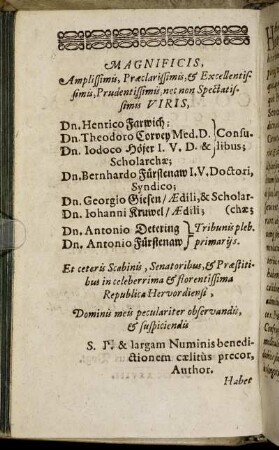 MAGNIFICIS,
Amplissimis, Præclarissimis, & Excellentis-
simis, Prudentissimis, nec non Spectatis-
simis VIRIS,
Dn. Henrico Farwich;
Dn. Theodoro Corvey Med. D. } Consu-
Dn. Iodoco Höjer I. V. D. & } libus;
Scholarchæ;
Dn. Bernhardo Fürstenaw I. V. Doctori,
Syndico;
Dn. Georgio Giesen / Ædili, & Scholar-
Dn. Iohanni Kruwel / Ædili; (chæ;
Dn. Antonio Detering } Tribunis pleb.
Dn. Antonio Fürstenaw } primarijs.
Et ceteris Scabinis, Senatoribus, & Præstiti-
bus in celeberrima & florentissima
Republica Hervordiensi,
Dominis meis peculiariter observandis,
& suspiciendis
S. P. & largam Numinis benedi-
ctionem cælitùs precor,
Author.
Habet